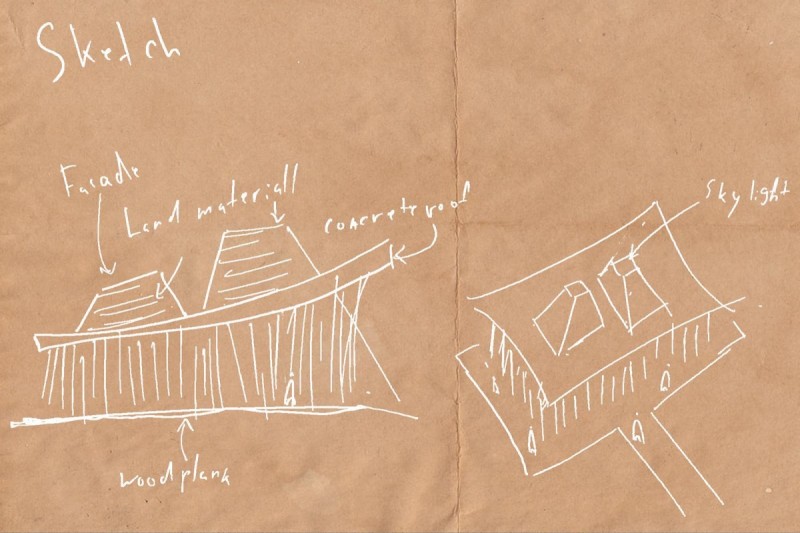 Sketch
Facade
Land materiall
concrete roof
Sky light
wood plank